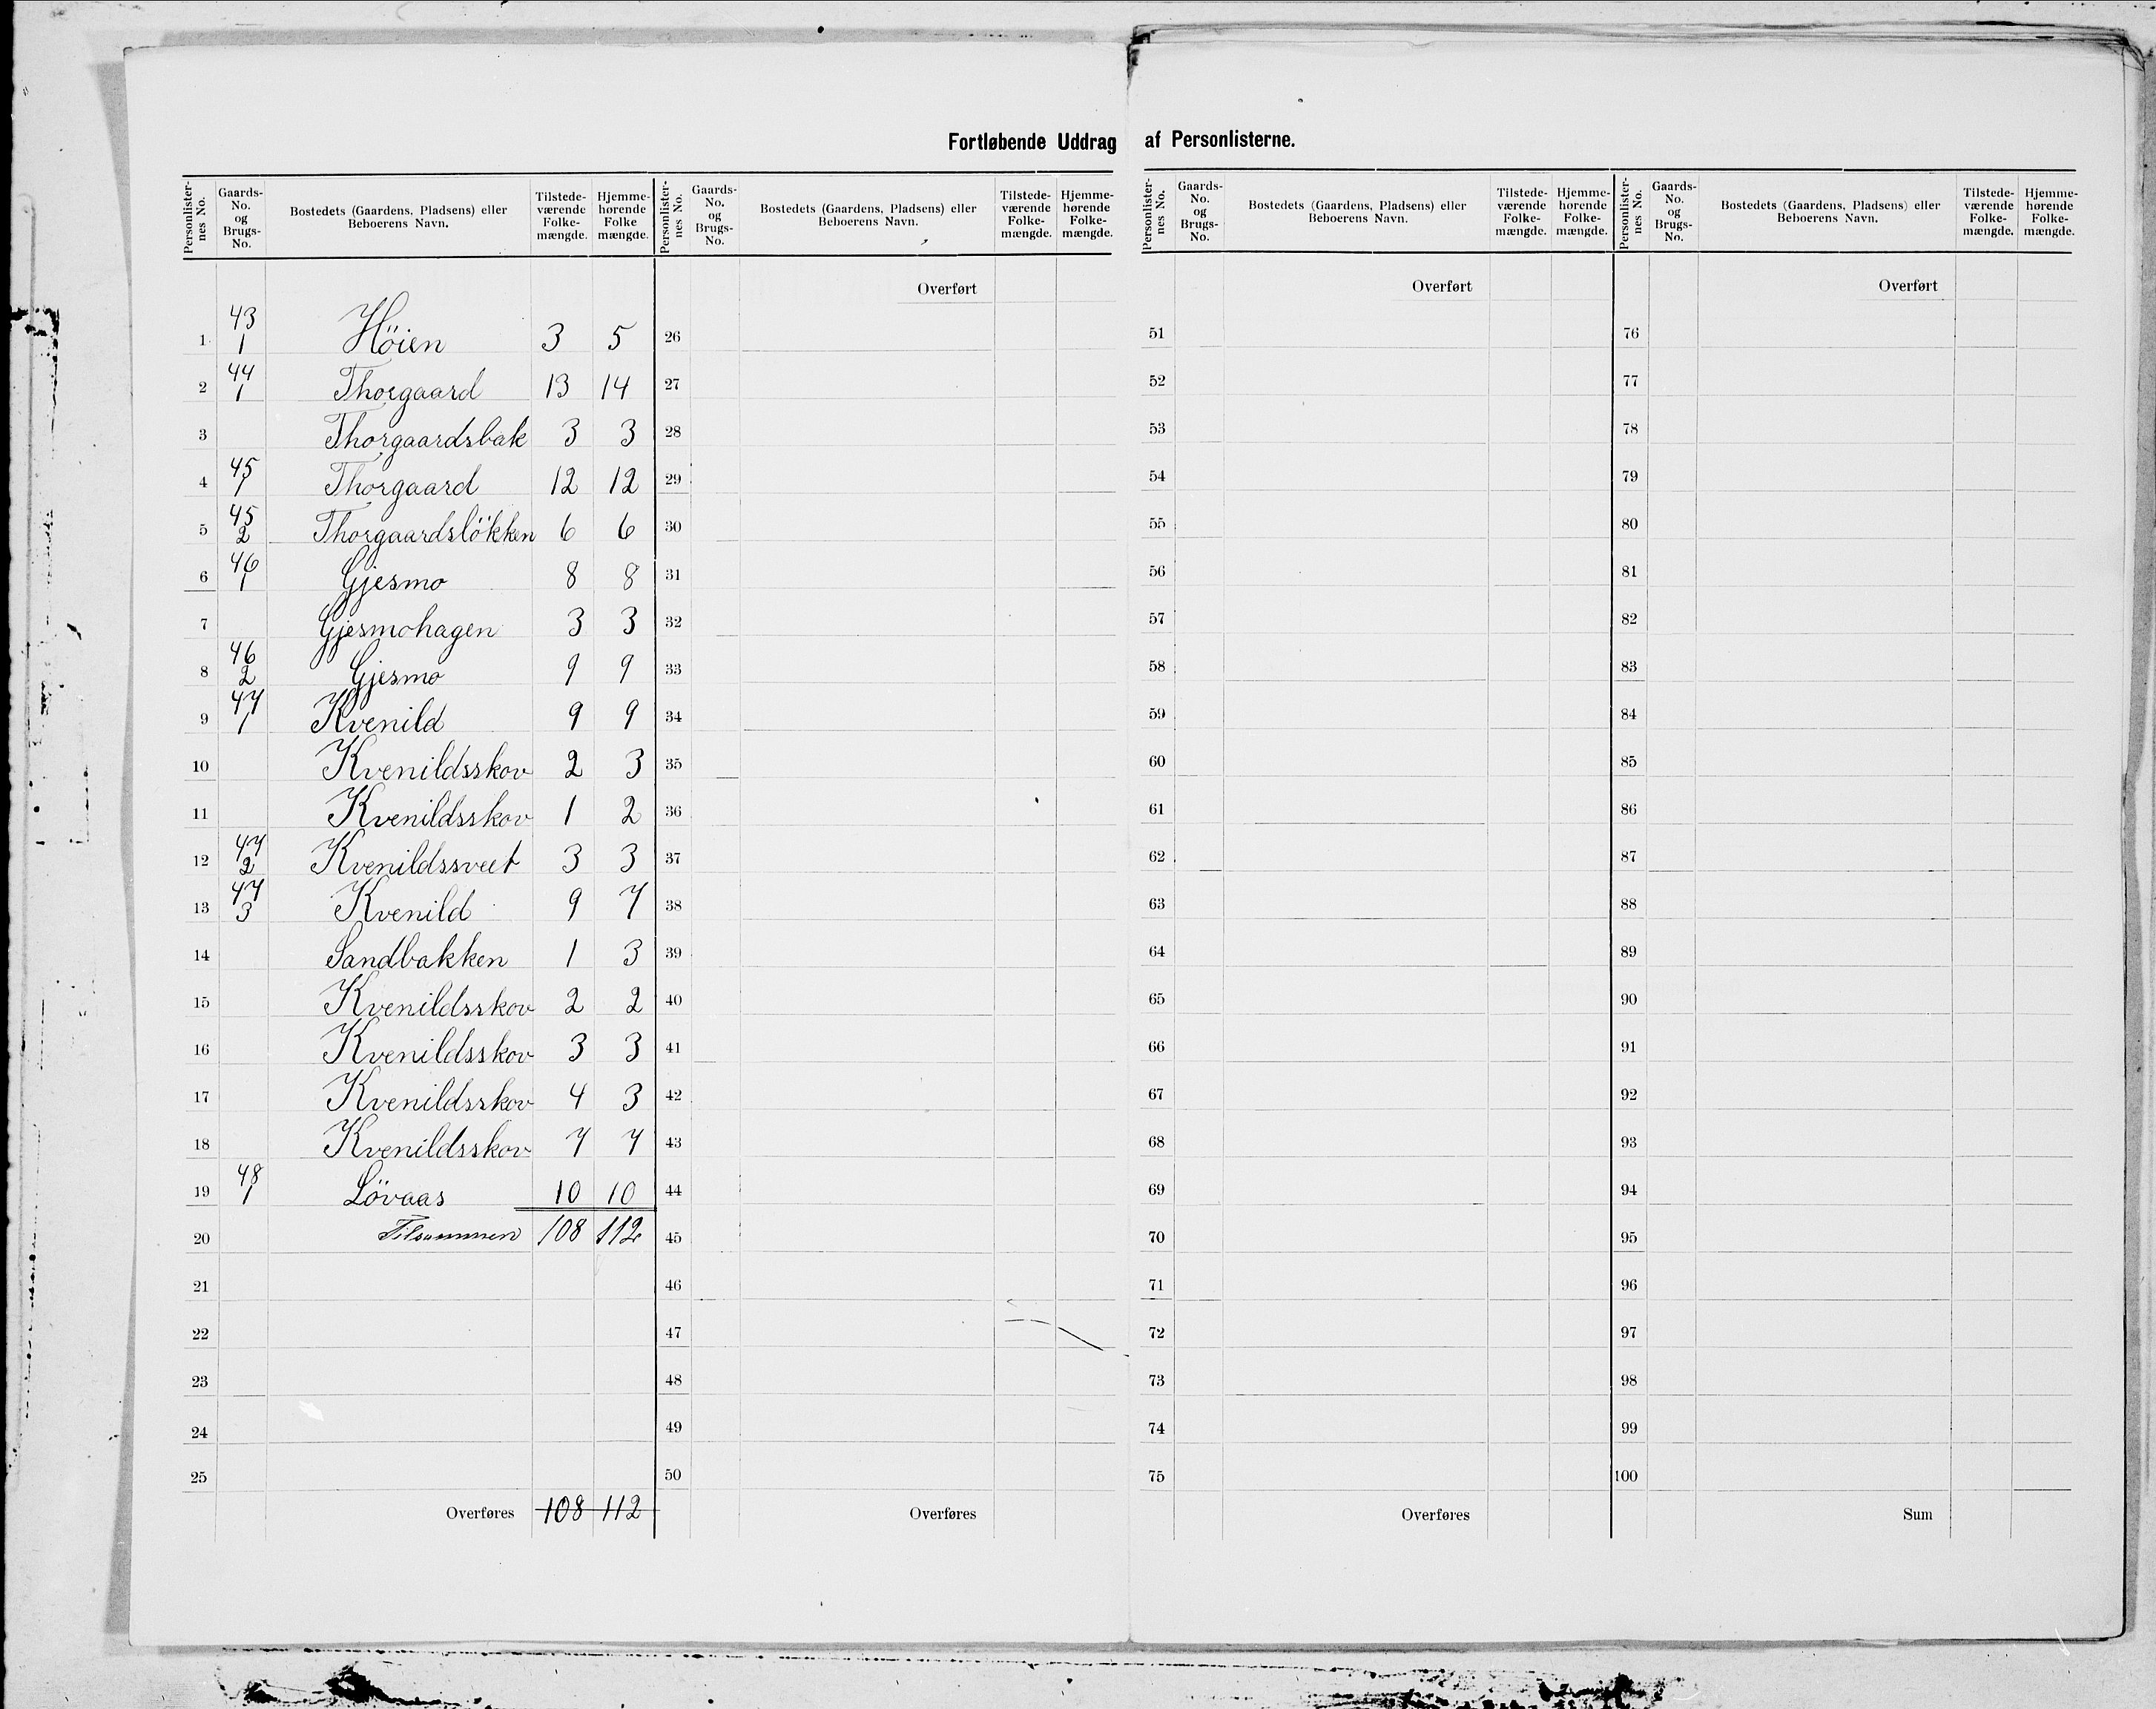 Fortløbende Uddrag af Personlisterne.
Personlister-nes No. | Gaards-No. og Brugs-No. | Bostedets (Gaardens, Pladsens) eller Beboerens Navn. | Tilstede-værende Folke-mængde. | Hjemme-hørende Folke mængde.
1 | 43/1 | Höien | 3 | 5
2 | 44/1 | Thorgaard | 13 | 14
3 | | Thorgaardsbak | 3 | 3
4 | 45/1 | Thorgaard | 12 | 12
5 | 45/2 | Thorgaardslökken | 6 | 6
6 | 46/1 | Gjesmo | 8 | 8
7 | | Gjesmohagen | 3 | 3
8 | 46/2 | Gjesmo | 9 | 9
9 | 47/1 | Kvenild | 9 | 9
10 | | Kvenildsskov | 2 | 3
11 | | Kvenildsskov | 1 | 2
12 | 47/2 | Kvenildssveet | 3 | 3
13 | 47/3 | Kvenild | 9 | 7
14 | | Sandbakken | 1 | 3
15 | | Kvenildsskov | 2 | 2
16 | | Kvenildsskov | 3 | 3
17 | | Kvenildsskov | 4 | 3
18 | | Kvenildsskov | 7 | 7
19 | 48/1 | Lövaas | 10 | 10
20 | | Tilsammen | 108 | 112
21
22
23
24
25
Overføres 108 112
Personlister-nes No. | Gaards-No. og Brugs-No. | Bostedets (Gaardens, Pladsens) eller Beboerens Navn. | Tilstede-værende Folke-mængde. | Hjemme-hørende Folke-mængde.
Overført
26
27
28
29
30
31
32
33
34
35
36
37
38
39
40
41
42
43
44
45
46
47
48
49
50
Overføres
Personlister-nes No. | Gaards-No. og Brugs-No. | Bostedets (Gaardens, Pladsens) eller Beboerens Navn. | Tilstede-værende Folke-mængde. | Hjemme-hørende Folke-mængde.
Overført
51
52
53
54
55
56
57
58
59
60
61
62
63
64
65
66
67
68
69
70
71
72
73
74
75
Overføres
Personlister-nes No. | Gaards-No. og Brugs-No. | Bostedets (Gaardens, Pladsens) eller Beboerens Navn. | Tilstede-værende Folke-mængde. | Hjemme-hørende Folke-mængde.
Overført
76
77
78
79
80
81
82
83
84
85
86
87
88
89
90
91
92
93
94
95
96
97
98
99
100
Sum